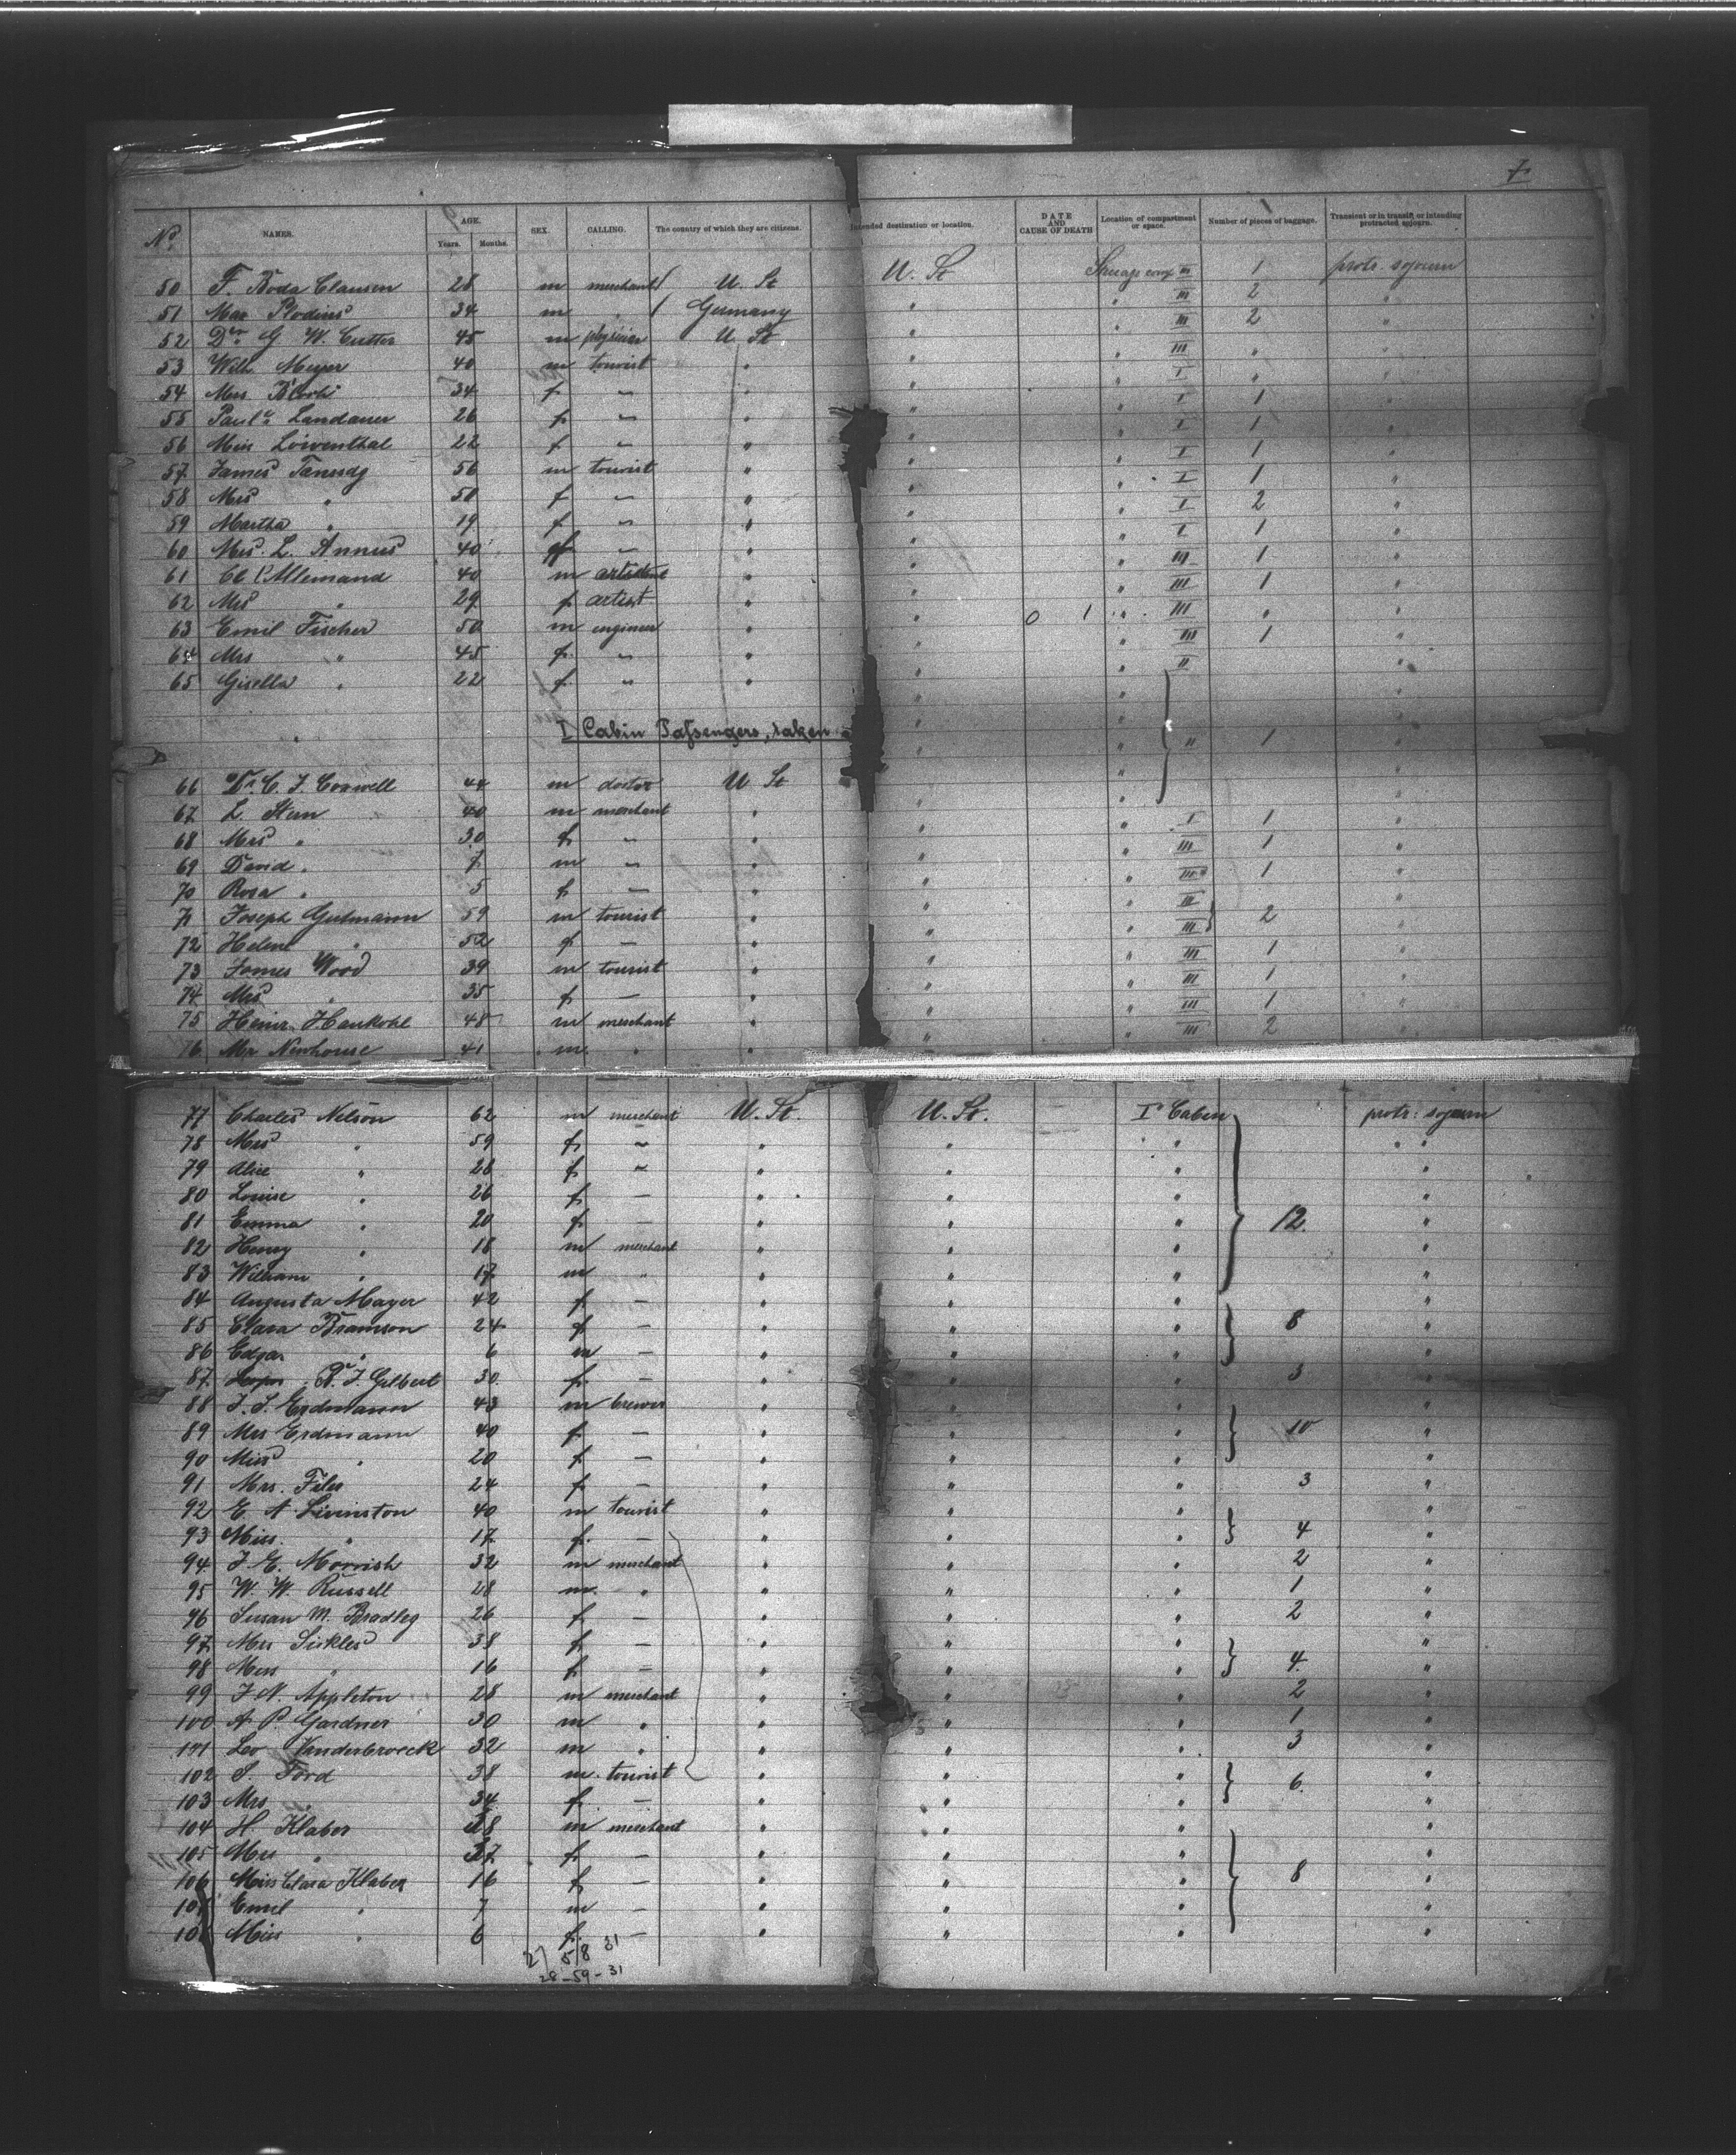 7
No. NAMES. AGE. Years. Months. SEX. CALLING. The country of which they are citizens. Intended destination or location. DATE AND CAUSE OF DEATH Location of compartment or space. Number of pieces of baggage. Transient or in transit, or intending protracted sojourn.
50 F. Boda Clausen 28 m merchant U. St U. St III 1 protr sojourn
51 Max Plodius 34 m " Germany " " III 2 "
52 Dr. G W. Cutter 45 m physician U. St " " III 2 "
53 Wilh Meyer 40 m tourist " " " III " "
54 Mrs 34 f — " " " I " "
55 Landauer 26 f — " " " I 1 "
56 Miss Löwenthal 22 f — " " " I 1 "
57 James 56 m tourist " " " I 1 "
58 Mrs " 50 f — " " " I 1 "
59 Martha " 19 f — " " " I 2 "
60 Mrs. L. Annus 40 f — " " " I 1 "
61 l'Allemand 40 m " " " III 1 "
62 Mrs " 29 f artist " " " III 1 "
63 Emil Fischer 50 m engineer " " 0 1 " III " "
64 Mrs " 45 f — " " " III 1 "
65 Gisella " 22 f — " " " II "
I Cabin Passengers, taken
" II 1 "
66 Dr. C. J. 44 m doctor U St
67 L. Stern 40 m merchant " " " I 1 "
68 Mrs " 30 f — " " " III 1 "
69 David " 7 m — " " " III 1 "
70 Rosa " 5 f — " " " III
71 Joseph Gutmann 59 m tourist " " " III 2 "
72 Helene " 52 f — " " " III 1 "
73 James Wood 39 m tourist " " " III 1 "
74 Mrs " 35 f — " " " III 1 "
75 Heinr. Haukohl 48 m merchant " " " III 2 "
76 Mr Newhouse 41 m " "
77 Charles Nelson 62 m merchant U. St. U. St. I Cabin protr: sojourn
78 Mrs " 59 f — " " " "
79 Alice " 28 f — " " " "
80 Louise " 26 f — " " " "
81 Emma " 20 f — " " " 12. "
82 Henry " 18 m merchant " " " "
83 William " 17 m " " " " "
84 Augusta Mayer 42 f — " " " "
85 Clara Bramson 24 f — " " " 8 "
86 Edgar " 6 m — " " " "
87 J. Gilbert 30 f — " " " 3 "
88 J. J. Erdmann 43 m brewer " " " "
89 Mrs Erdmann 40 f — " " " 10 "
90 Miss " 20 f — " " " "
91 Mrs. Files 24 f — " " " 3 "
92 E. A. Livinston 40 m tourist " " " "
93 Miss " 17 f — " " " 4 "
94 J. E. Morrish 32 m merchant " " " 2 "
95 W. W. Russell 28 m " " " " 1 "
96 Susan M. Bradley 26 f — " " " 2 "
97 Mrs Sickles 38 f — " " " "
98 Miss " 16 f — " " " 4. "
99 J. N. Appleton 28 m merchant " " " 2 "
100 A. P. Gardner 30 m " " " " 1 "
101 Leo Vanderbroeck 32 m " " " " 3 "
102 S. Ford 38 m tourist " " " 6. "
103 Mrs " 34 f — " " " "
104 H. Klaber 38 m merchant " " " "
105 Mrs " 37 f — " " " "
106 Miss Clara Klaber 16 f — " " " 8 "
107 Emil " 7 m — " " " "
108 Miss " 6 f — " " " "
27 58 31
28-59-31